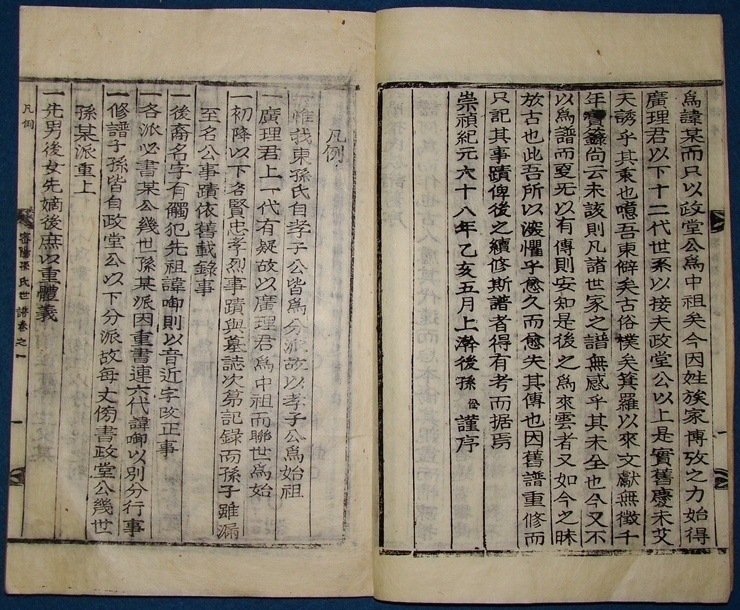 爲諱某而只以政堂公爲中祖矣今因姓族家博攷之力始得
廣理君以下十二代世系以接夫政堂公以上是實舊慶未艾
天誘乎其衷也噫吾東僻矣古俗樸矣箕羅以來文獻無徵千
年寶籙尙云未該則凡諸世家之譜無感乎其未全也今又不
以爲譜而更无以有傳則安知是後之爲來雲者又如今之昧
放古也此吾所以深懼乎愈久而愈失其傳也因舊譜重修而
只記其事蹟俾後之續修斯譜者得有考而据焉
崇禎紀元六十八年乙亥五月上澣後孫 謹序
凡例
惟我東孫氏自孝子公皆爲分派故以孝子公爲始祖
一廣理君上一代有疑故以廣理君爲中祖而聯世爲始
一初降以下名賢忠孝烈事蹟與墓誌次第記錄而孫子雖漏
至名公事蹟依舊載錄事
一後裔名字有觸犯先祖諱啣則以音近字改正事
一各派必書某公幾世孫某派因重書連六代諱啣以別分行事
一修譜子孫皆自政堂公以下分派故每丈傍書政堂公幾世
孫某派重上
一先男後女先嫡後庶以重體義
凡例
密陽孫氏世譜卷之一
一